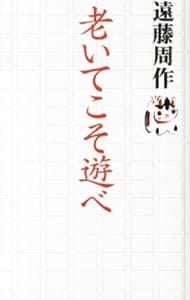 遠藤周作
老いてこそ遊べ